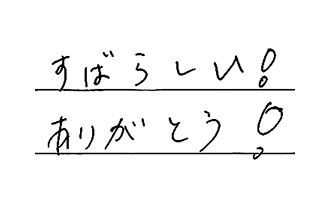 すばらしい!
ありがとう!